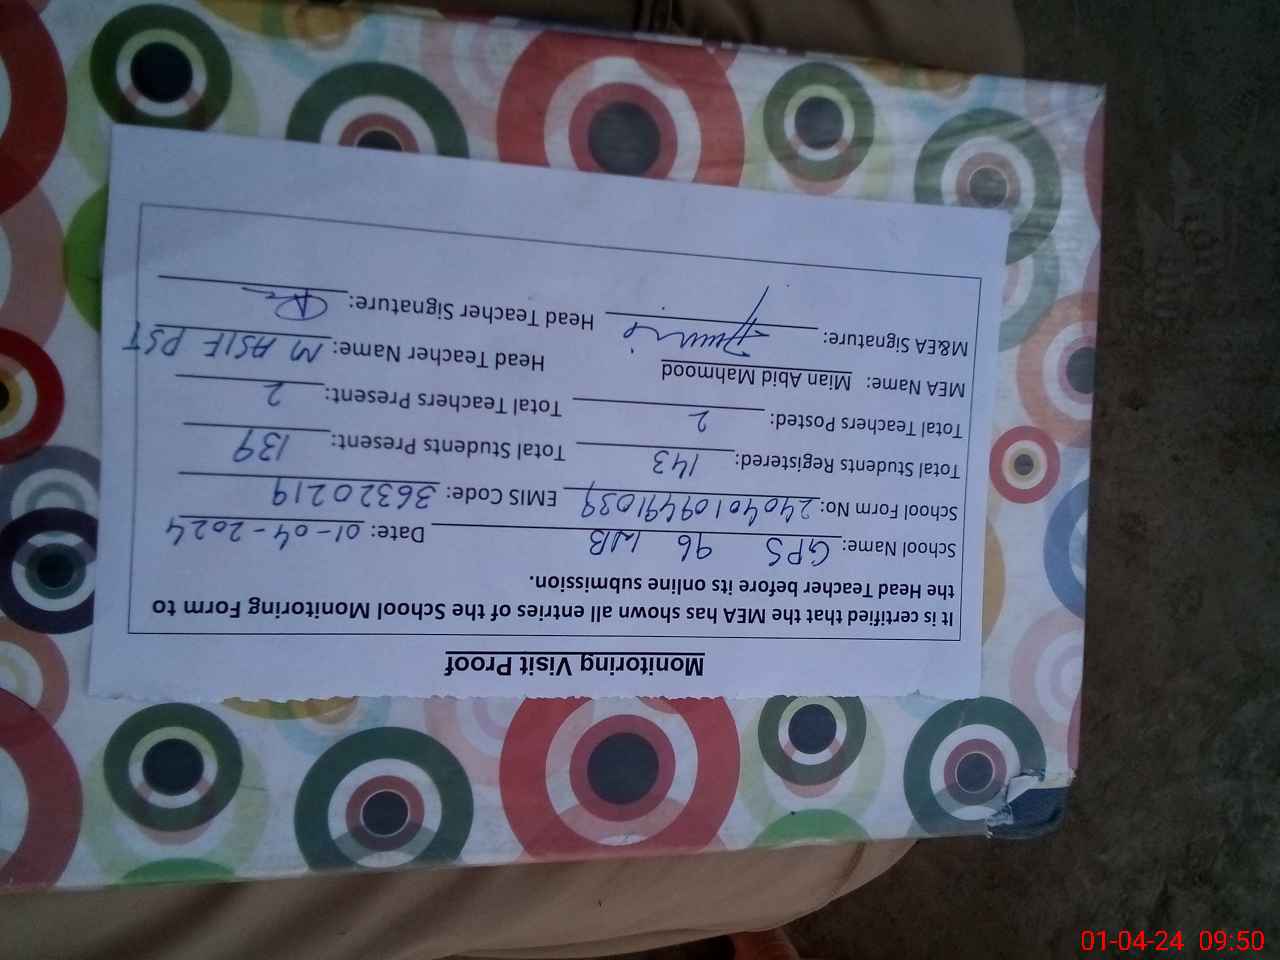 Monitoring Visit Proof
It is certified that the MEA has shown all entries of the School Monitoring Form to
the Head Teacher before its online submission.
School Name: GPS 96 WB Date: 01-04-2024
School Form No: 24040109491039 EMIS Code: 36320219
Total Students Registered: 143 Total Students Present: 139
Total Teachers Posted: 2 Total Teachers Present: 2
MEA Name: Mian Abid Mahmood Head Teacher Name: M ASIF PST
M&EA Signature: Head Teacher Signature:
01-04-24 09:50